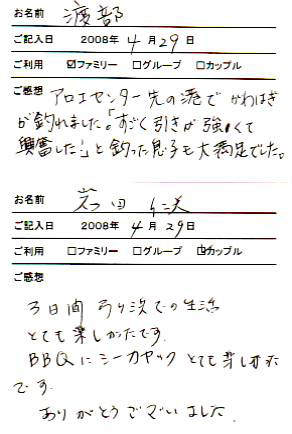 お名前 渡部
ご記入日 2008年 4月29日
ご利用 ☑ファミリー □グループ □カップル
ご感想 アロエセンター先の港で かわはぎ
が釣れました。「すごく引きが強くて
興奮した!」と釣った息子も大満足でした。
お名前 岩田
ご記入日 2008年 4月29日
ご利用 □ファミリー □グループ ☑カップル
ご感想
3日間 弓ヶ浜での生活
とても楽しかたです.
BBQにシーカヤック とても楽しかた
です.
ありがとうございました.